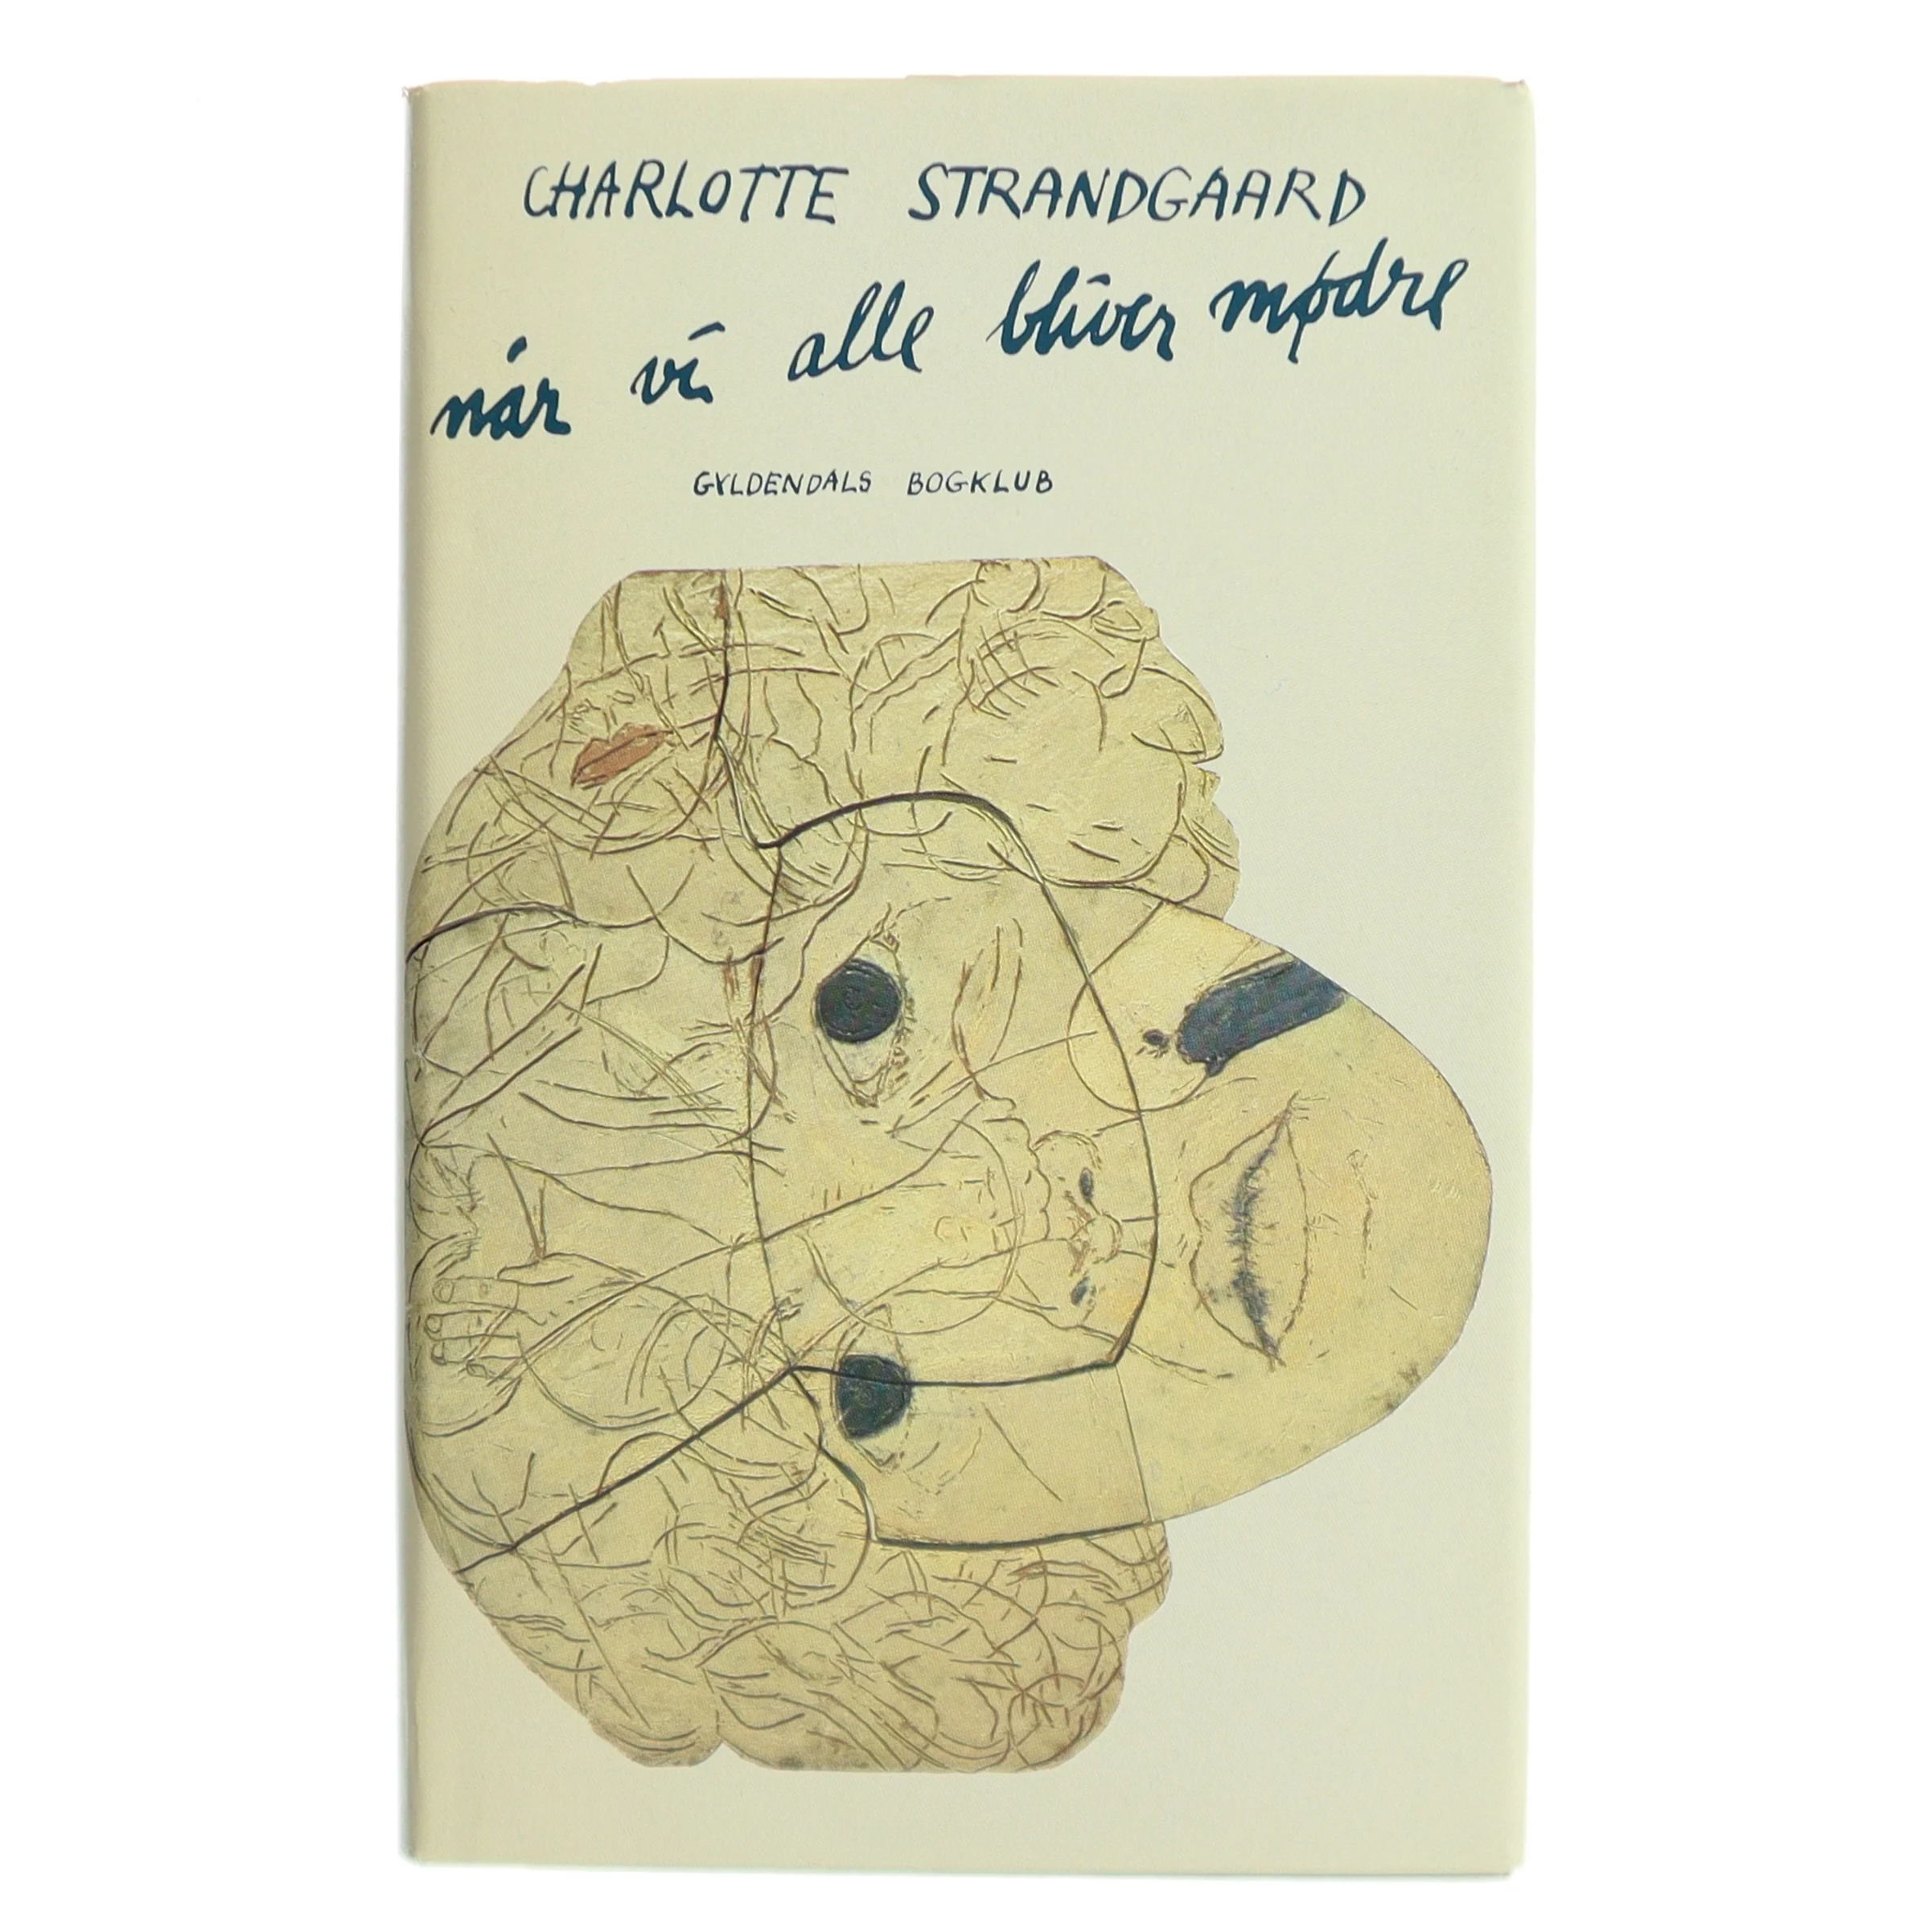 CHARLOTTE STRANDGAARD
når vi alle bliver mødre
GYLDENDALS BOGKLUB